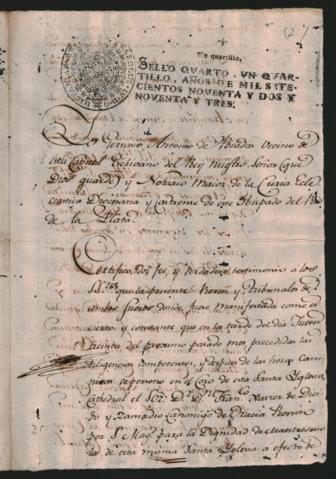 (2)
Un quartillo.
SELLO QUARTO, UN QUAR-
TILLO, AÑOS DE MIL SETE-
CIENTOS NOVENTA Y DOS Y
NOVENTA Y TRES.
Yo Antonio de Vecino de
esta Capital Escrivano del Rey nuestro señor (que
Dios guarde) y Notario Maior de la Curia Ecle
siastica Diocesana y de este Obispado del
de la Plata.
Certifico, doi fee, y verdadero testimonio à los
SS.res que la presente vieren, y tribunales de
ambos fueros donde fuere manifestada como es
cierto y constante que en la tarde del dia Jueves
treinta del proximo pasado mes precedidas las
diligencias competentes, y despues de las horas Cano
nicas en el Coro de esta Santa Yglesia
Cathedral el Sor. D.r D.n Fran.co Xavier de
y Zamudio Canonigo de Gracia
por S. Mag. para la Dignidad de Maestrescue
la de esta misma Santa Yglesia a efecto de